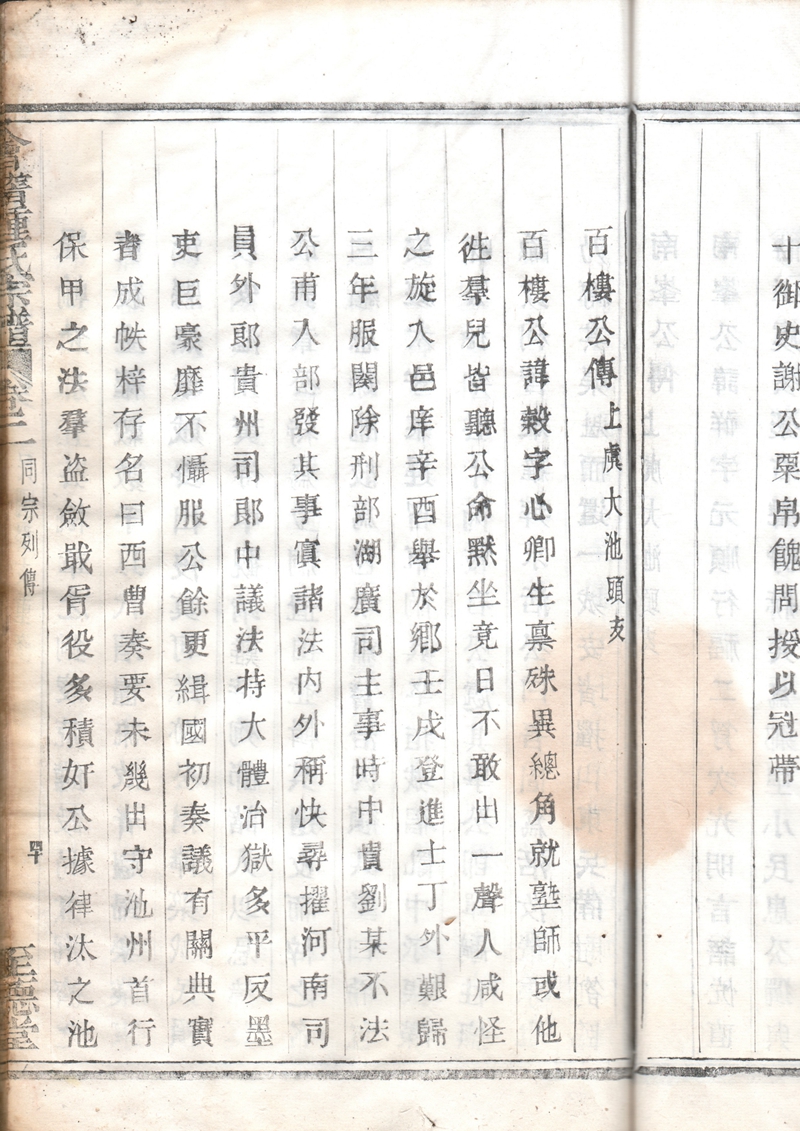 十御史謝公粟帛餽問授以冠帶
百樓公傳上虞大池頭支
百樓公諱榖字心卿生禀殊異總角就塾師或他
徃羣兒皆聽公命默坐竟日不敢出一聲人咸怪
之旋入邑庠辛酉舉於鄉壬戌登進士丁外艱歸
三年服闋除刑部湖廣司主事時中貴劉某不法
公甫入部發其事寘諸法內外稱快尋擢河南司
員外郎貴州司郎中議法持大體治獄多平反墨
吏巨豪靡不懾服公餘更緝國初奏議有關典實
者成帙梓存名曰西曹奏要未幾出守池州首行
保甲之法羣盜斂戢胥役多積奸公據律汰之池
會稽鍾氏宗譜 卷二 同宗列傳 四十 至德堂